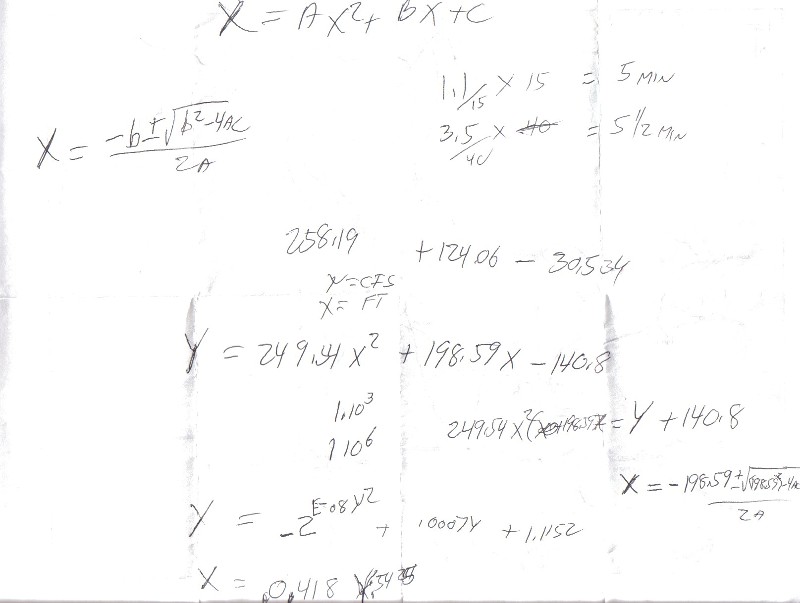 X = AX² + BX + C
1.1/15 X 15 = 5 MIN
X = -b ± √b²-4AC / 2A
3.5/40 X 40 = 5 1/2 MIN
258.19 + 124.06 - 30.534
Y=CFS
X= FT
Y = 249.54 X² + 198.59X - 140.8
1.10³
1 10⁶
249.54 X² = Y + 140.8
X = -198.59 ± √198.59²-4AC / 2A
Y = -2E-08Y² + .0007Y + 1.1152
X = 0.418